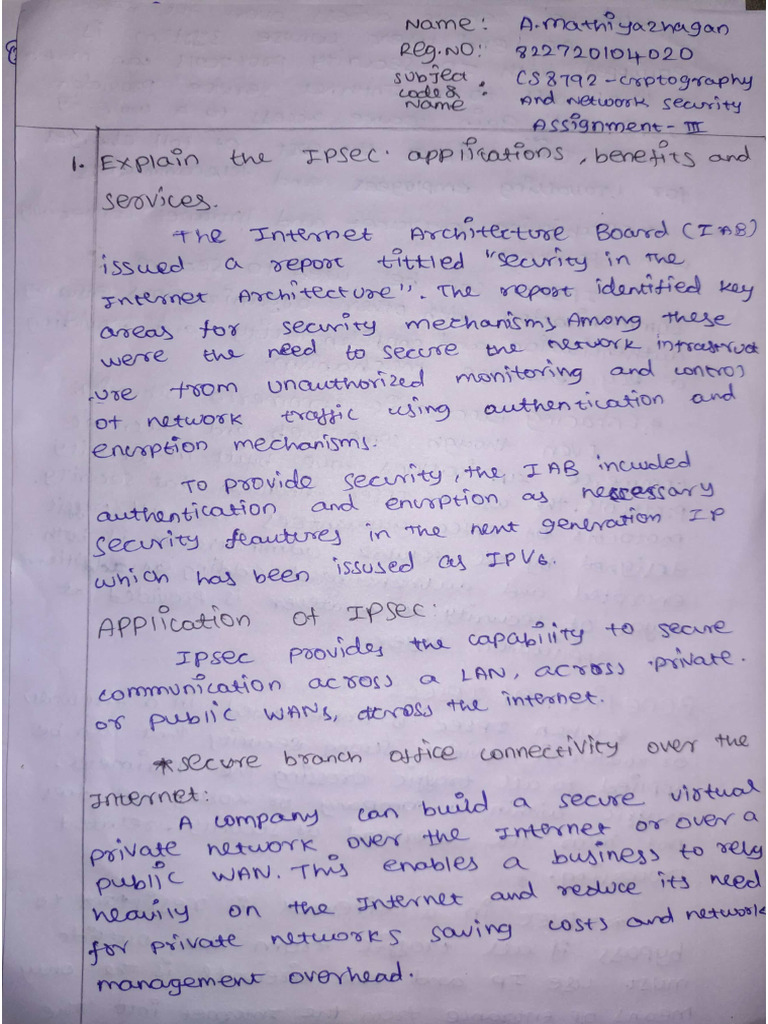 Name: A.Mathiyazhagan
Reg.NO: 822720104020
Subject code & Name : CS8792-Crptography And Network Security
Assignment-III
1. Explain the IPsec. applications, benefits and
services.
The Internet Architecture Board (IAB)
issued a report tittled "Security in the
Internet Architecture". The report identified key
areas for security mechanisms Among these
were the need to secure the network infrastruct
ure from unauthorized monitoring and control
of network traffic using authentication and
encrption mechanisms.
To provide security, the IAB incuded
authentication and encrption as necessary
security feautures in the next generation IP
which has been issused as IPV6.
Application of IPsec:
IPsec provides the capability to secure
communication across a LAN, across private.
or public WANs, across the internet.
*Secure branch office connectivity over the
Internet:
A company can build a secure virtual
private network over the Internet or over a
public WAN. This enables a business to rely
heavily on the Internet and reduce its need
for private networks saving costs and network
management overhead.